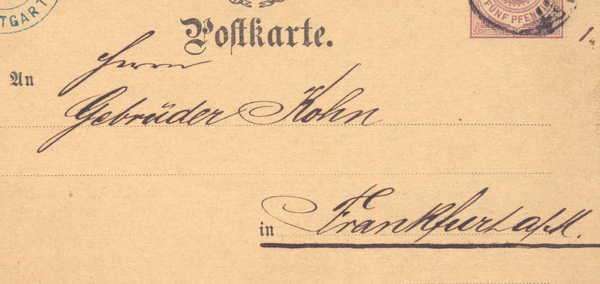 TGART
FÜNF PFEN
Postkarte.
An
Herrn
Gebrüder Kohn
in
Frankfurt a/M.